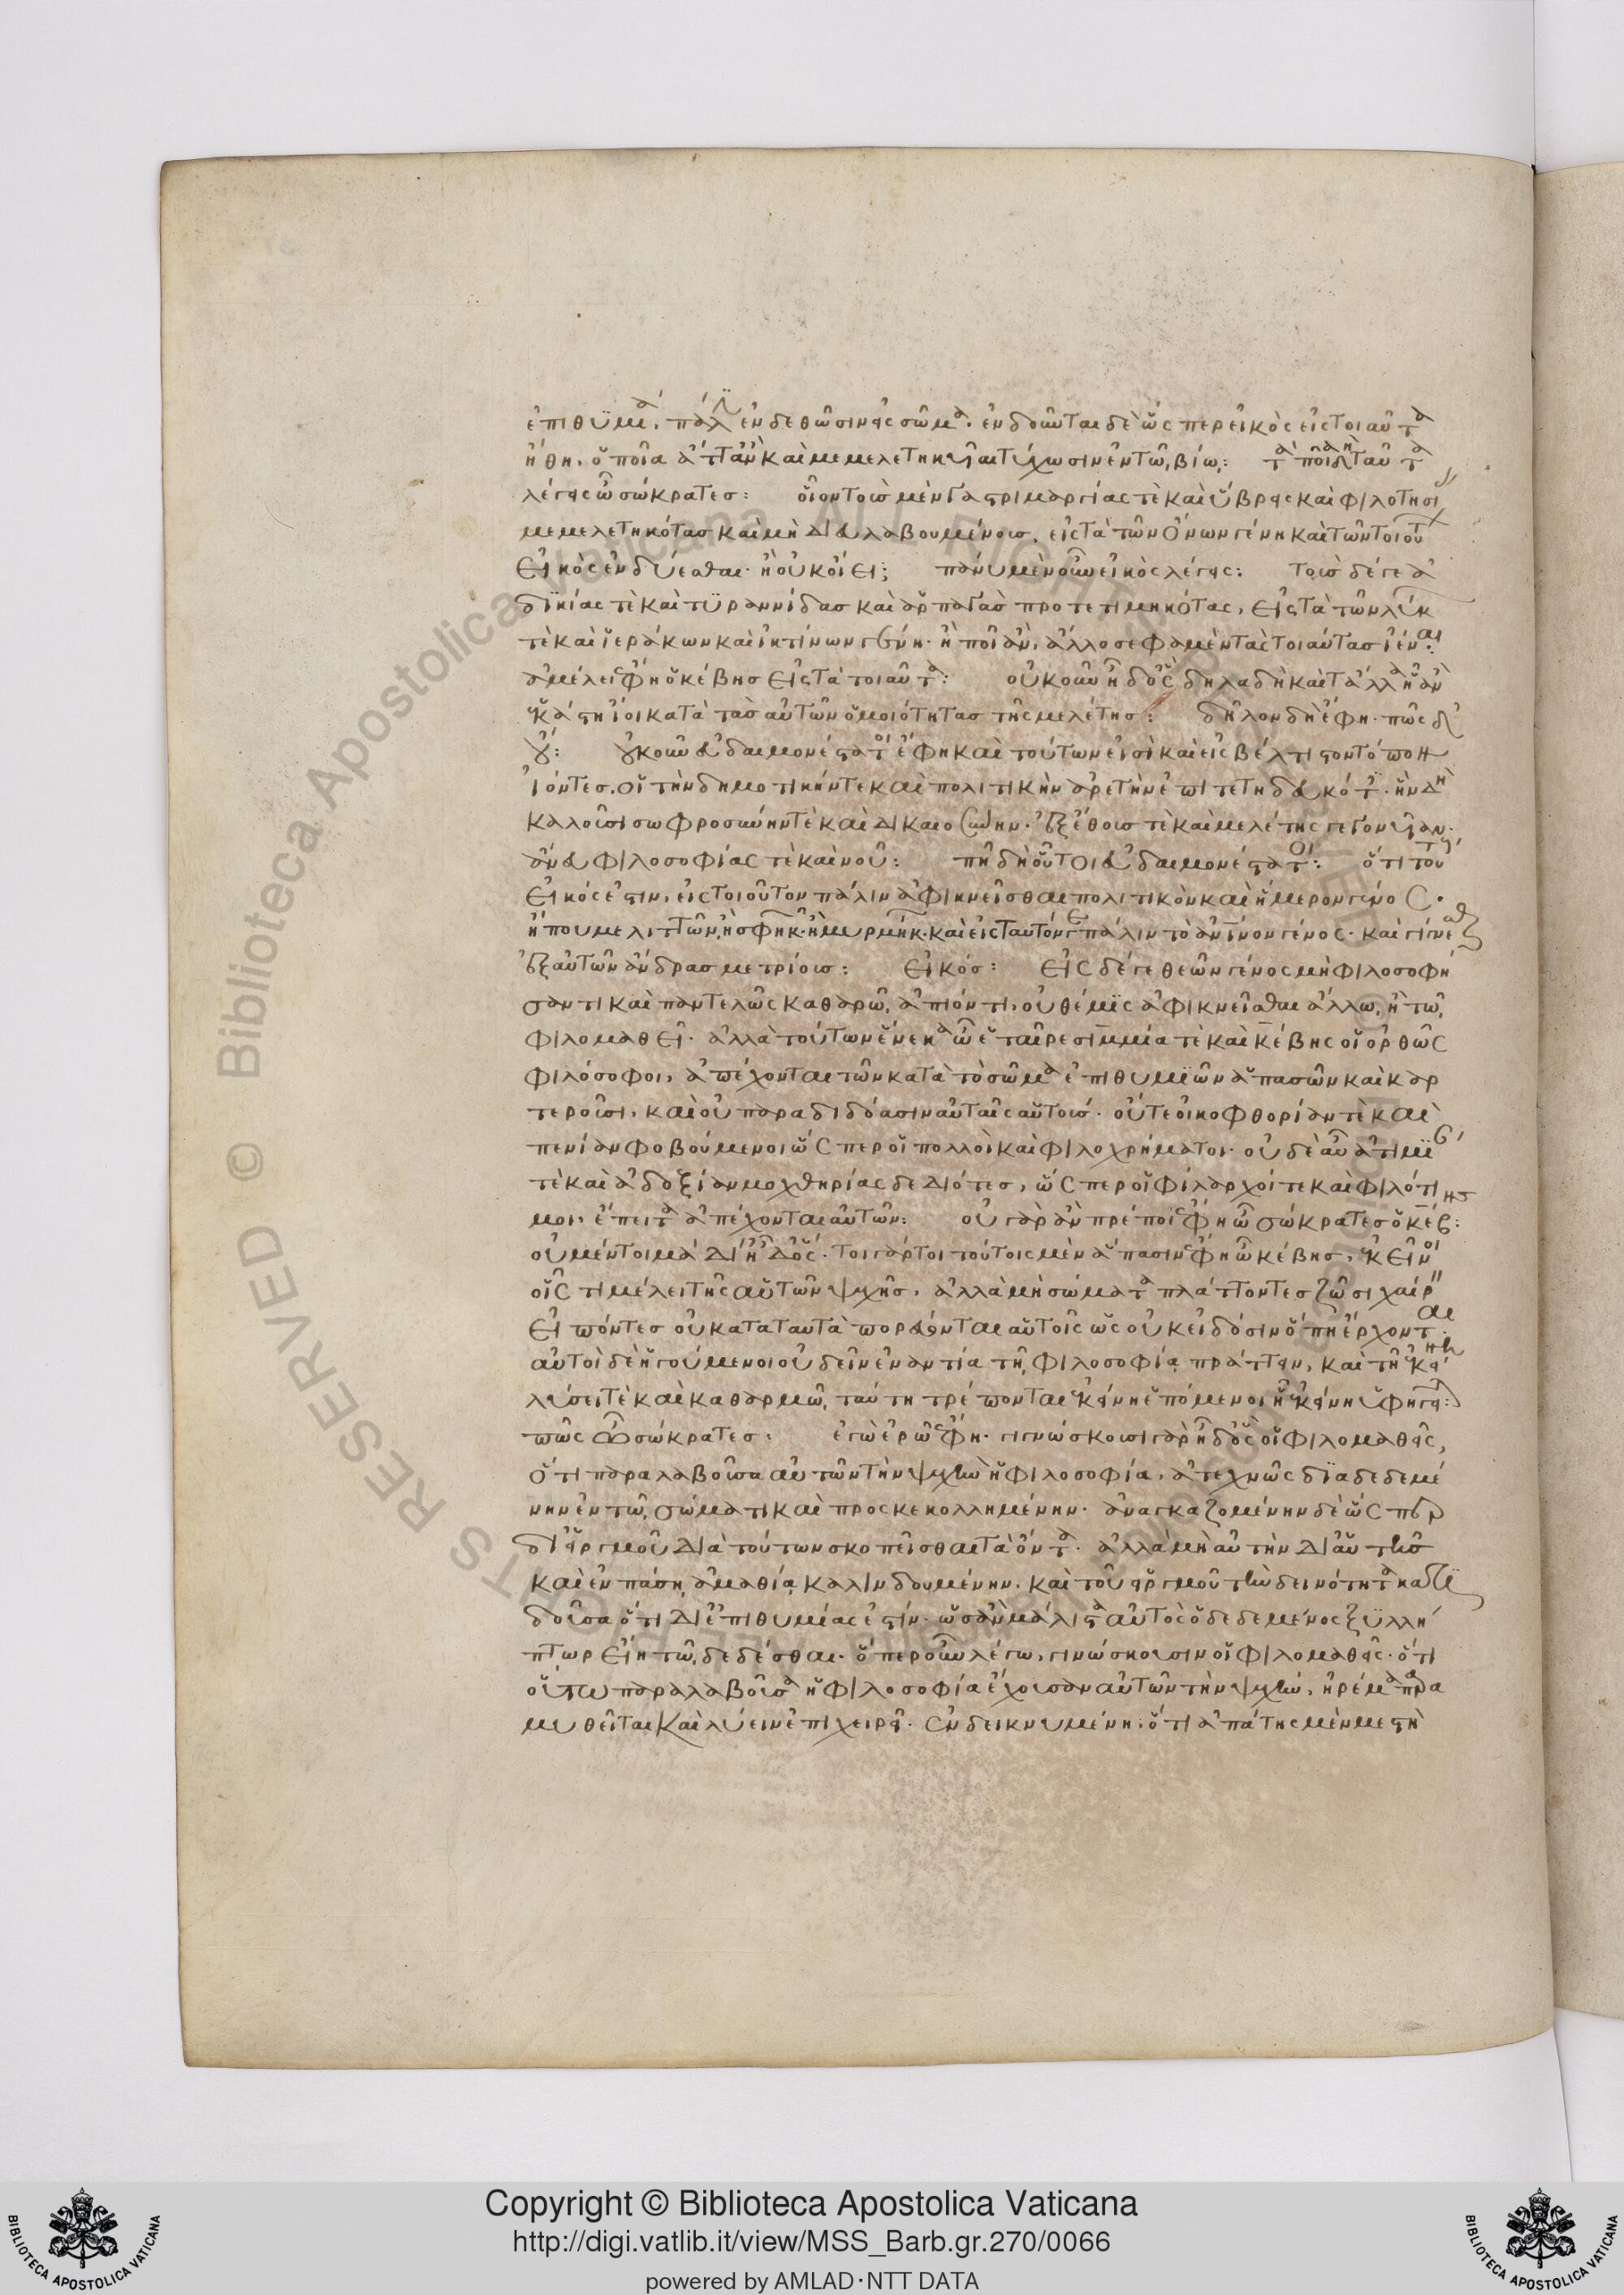 ἐπιθυμία πάλιν ἐνδεθῶσιν εἰς σῶμα. ἐνδοῦνται δὲ ὥσπερ εἰκὸς εἰς τοιαῦτα
ἤθη. ὁποῖα ἄττ' ἂν καὶ μεμελετηκυῖαι τύχωσιν ἐν τῷ βίῳ: τὰ ποῖα δὴ ταῦτα
λέγεις ὦ σώκρατες: οἷον τοὺς μὲν γαστριμαργίας τὲ καὶ ὕβρεις καὶ φιλοτησί
μεμελετηκότας καὶ μὴ διευλαβουμένους, εἰς τὰ τῶν ὄνων γένη καὶ τῶν τοιούτ
εἰκὸς ἐνδύεσθαι. ἢ οὐκ οἴει; πάνυ μὲν οὖν εἰκὸς λέγεις: τοὺς δέ γε ἀ
δικίας τὲ καὶ τυραννίδας καὶ ἁρπαγὰς προτετιμηκότας, εἰς τὰ τῶν λύκ
τὲ καὶ ἱεράκων καὶ ἰκτίνων γένη. ἢ ποῖ ἂν ἄλλοσε φαμὲν τὰς τοιαύτας ἰέναι:
ἀμέλει ἔφη ὁ κέβης εἰς τὰ τοιαῦτα: οὐκοῦν ἦ δ' ὃς δῆλα δὴ καὶ τἄλλα ᾗ ἂν
ἑκάστη ἴοι κατὰ τὰς αὐτῶν ὁμοιότητας τῆς μελέτης: δῆλον δὴ ἔφη. πῶς δ'
οὔ: οὐκοῦν εὐδαιμονέστατοι ἔφη καὶ τούτων εἰσὶ καὶ εἰς βέλτιστον τόπον
ἰόντες. οἱ τὴν δημοτικήν τε καὶ πολιτικὴν ἀρετὴν ἐπιτετηδευκότες. ἣν δὴ
καλοῦσι σωφροσύνην τὲ καὶ δικαιοσύνην. ἐξ ἔθους τὲ καὶ μελέτης γεγονυῖαν.
ἄνευ φιλοσοφίας τὲ καὶ νοῦ: πῇ δὴ οὗτοι εὐδαιμονέστατοι: ὅτι τού
εἰκός ἐστιν, εἰς τοιοῦτον πάλιν ἀφικνεῖσθαι πολιτικὸν καὶ ἥμερον γένος.
ἤπου μελιττῶν, ἢ σφηκῶν ἢ μυρμήκων. καὶ εἰς ταυτόν γε πάλιν τὸ ἀνθρώπινον γένος. καὶ γίγνεσθαι
ἐξ αὐτῶν ἄνδρας μετρίους: εἰκός: εἰς δέ γε θεῶν γένος μὴ φιλοσοφή
σαντι καὶ παντελῶς καθαρῷ ἀπιόντι, οὐ θέμις ἀφικνεῖσθαι ἄλλῳ, ἢ τῷ
φιλομαθεῖ. ἀλλὰ τούτων ἕνεκα ὦ ἑταῖρε σιμμία τὲ καὶ κέβης οἱ ὀρθῶς
φιλόσοφοι, ἀπέχονται τῶν κατὰ τὸ σῶμα ἐπιθυμιῶν ἁπασῶν καὶ καρ
τεροῦσι, καὶ οὐ παραδιδόασιν αὐταῖς αὑτούς. οὔτε οἰκοφθορίαν τὲ καὶ
πενίαν φοβούμενοι ὥσπερ οἱ πολλοὶ καὶ φιλοχρήματοι. οὐδὲ αὖ ἀτιμί
τὲ καὶ ἀδοξίαν μοχθηρίας δεδιότες, ὥσπερ οἱ φίλαρχοί τε καὶ φιλότι
μοι, ἔπειτα ἀπέχονται αὐτῶν: οὐ γὰρ ἂν πρέποι ἔφη ὦ σώκρατες ὁ κέβης:
οὐ μέντοι μὰ δί' ἦ δ' ὅς. τοιγάρτοι τούτοις μὲν ἅπασιν ἔφη ὦ κέβης, ἐκεῖνοι
οἷς τι μέλει τῆς αὑτῶν ψυχῆς. ἀλλὰ μὴ σώματα πλάττοντες ζῶσι χαίρ
εἰπόντες οὐ κατὰ ταυτὰ πορεύονται αὐτοῖς ὡς οὐκ εἰδόσιν ὅπη ἔρχονται.
αὐτοὶ δὲ ἡγούμενοι οὐ δεῖν ἐναντία τῇ φιλοσοφίᾳ πράττειν, καὶ τῇ ἐκεί
λύσει τὲ καὶ καθαρμῷ, ταύτη τρέπονται ἐκείνη ἑπόμενοι ᾗ ἐκείνη ὑφηγεῖται:
πῶς ὦ σώκρατες: ἐγὼ ἐρῶ ἔφη. γιγνώσκουσι γὰρ ἦ δ' ὃς οἱ φιλομαθεῖς,
ὅτι παραλαβοῦσα αὐτῶν τὴν ψυχὴν ἡ φιλοσοφία, ἀτεχνῶς διαδεδεμέ
νην ἐν τῷ σώματι καὶ προσκεκολλημένην. ἀναγκαζομένην δὲ ὥσπερ
δι' εἱργμοῦ διὰ τούτου σκοπεῖσθαι τὰ ὄντα. ἀλλὰ μὴ αὐτὴν δι' αὑτῆς
καὶ ἐν πάσῃ ἀμαθίᾳ καλινδουμένην. καὶ τοῦ εἱργμοῦ τὴν δεινότητα κατι
δοῦσα ὅτι δι' ἐπιθυμίας ἐστίν. ὡς ἂν μάλιστα αὐτὸς ὁ δεδεμένος ξυλλή
πτωρ εἴη τῷ δεδέσθαι. ὅπερ οὖν λέγω, γινώσκουσιν οἱ φιλομαθεῖς. ὅτι
οὕτω παραλαβοῦσα ἡ φιλοσοφία ἔχουσαν αὐτῶν τὴν ψυχήν, ἠρέμα παρα
μυθεῖται καὶ λύειν ἐπιχειρεῖ. ἐνδεικνυμένη. ὅτι ἀπάτης μὲν μεστὴ
Copyright © Biblioteca Apostolica Vaticana
http://digi.vatlib.it/view/MSS_Barb.gr.270/0066
powered by AMLAD·NTT DATA